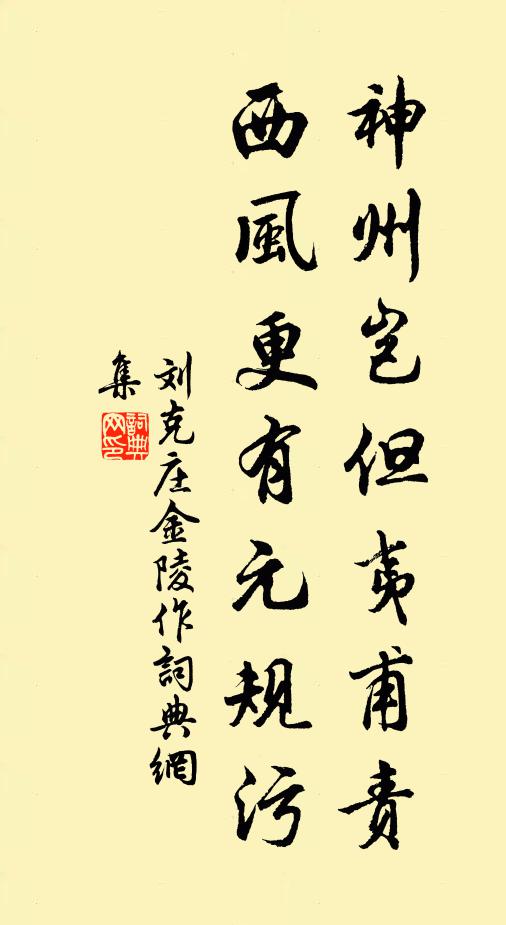 神州岂但夷甫责
西風更有元规污
刘克庄金陵作詞典網
集
詞典
网印